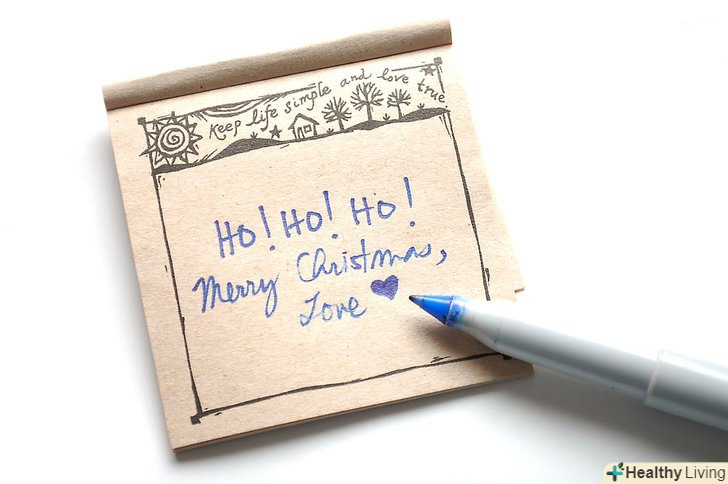 Keep life simple and love true
Ho! Ho! Ho!
Merry Christmas,
Love
Healthy Living